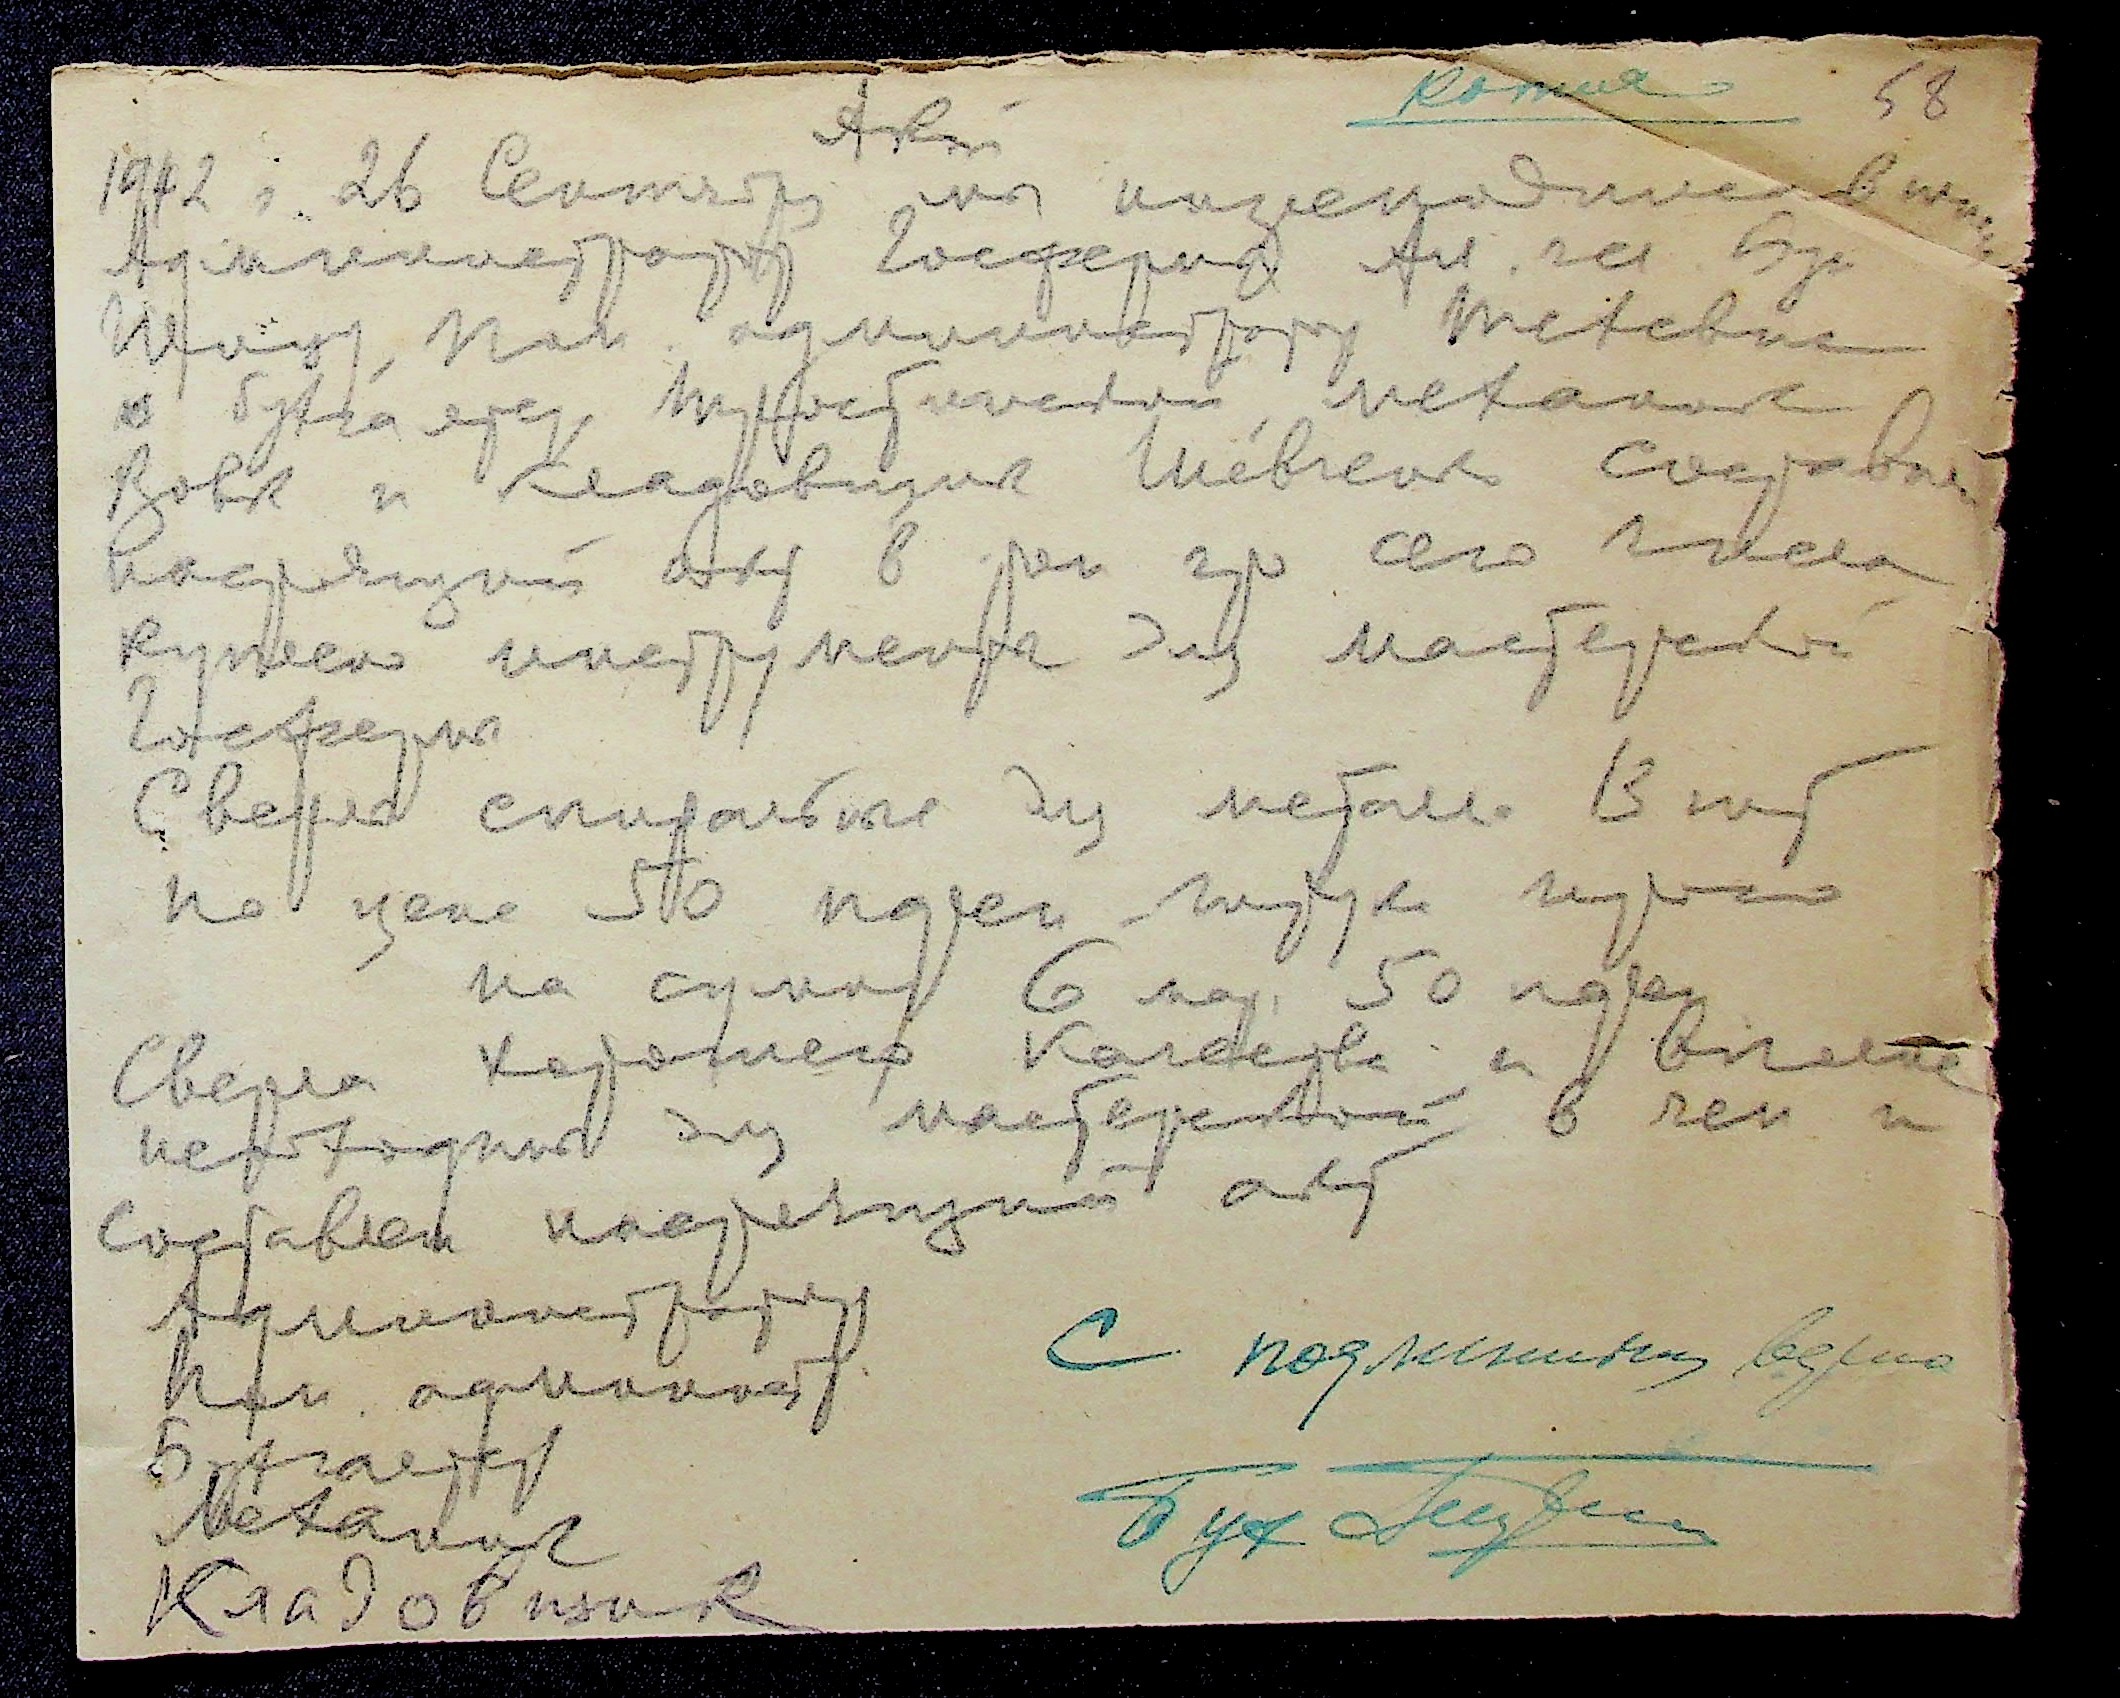 Копия 58
Акт
1942 г. 26 Сентября мы нижеподписавшиеся
Администратор Госферми
Пом. администратора
и бухгалтер, механик
Вовк и Кладовщик Шевченко составили
настоящий акт в том что сего числа
куплено инструмента для мастерской
Госферми
Сверла спиральные для метала 13 шт
по цене 50 пфен штука
на сумму 6 мар. 50 пфен
Сверла хорошего качества и вполне
необходимы для мастерской в чем и
составлен настоящий акт
Администратор
Пом. администр
Бухгалтер
Механик
Кладовщик
С подлинным верно
Бух